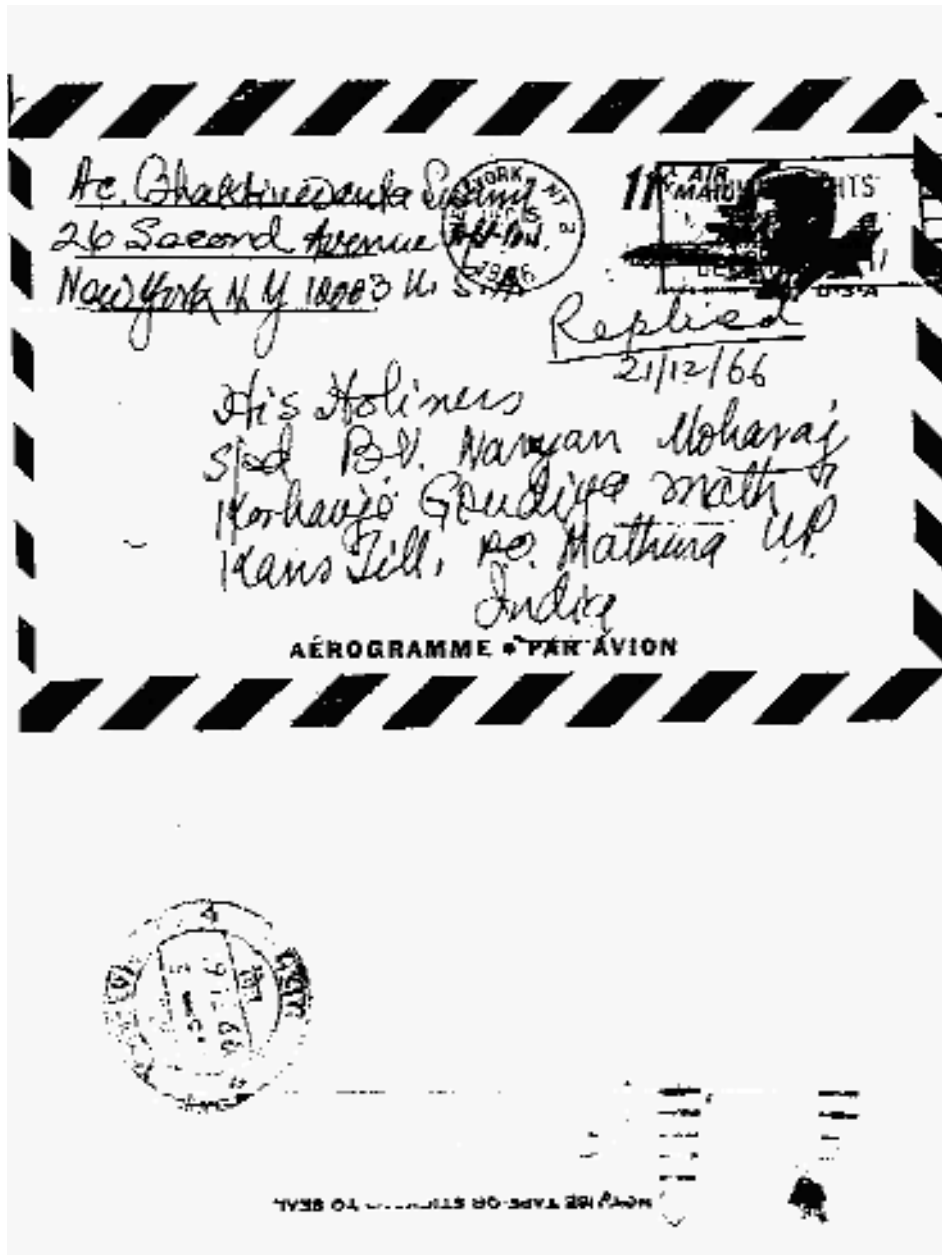 Ac. Bhaktivedanta Swami
26 Second Avenue
New York N.Y 10003 U.S.A
YORK, NY
1966
11¢
AIR MAIL
HUMAN RIGHTS
U·S·A
Replied
21/12/66
His Holiness
Sripad B.V. Narayan Moharaj
Keshavji Goudiya math
Kans Till, PO. Mathura U.P.
India
AÉROGRAMME • PAR AVION
4
TAPE OR STICKERS TO SEAL